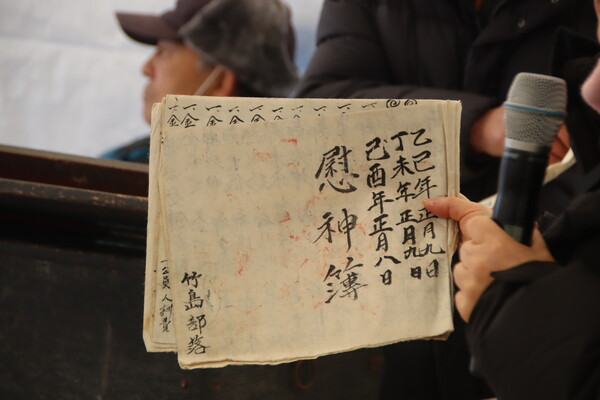 乙巳年正月九日
丁未年正月九日
己酉年正月八日
慰神簿
竹島部落